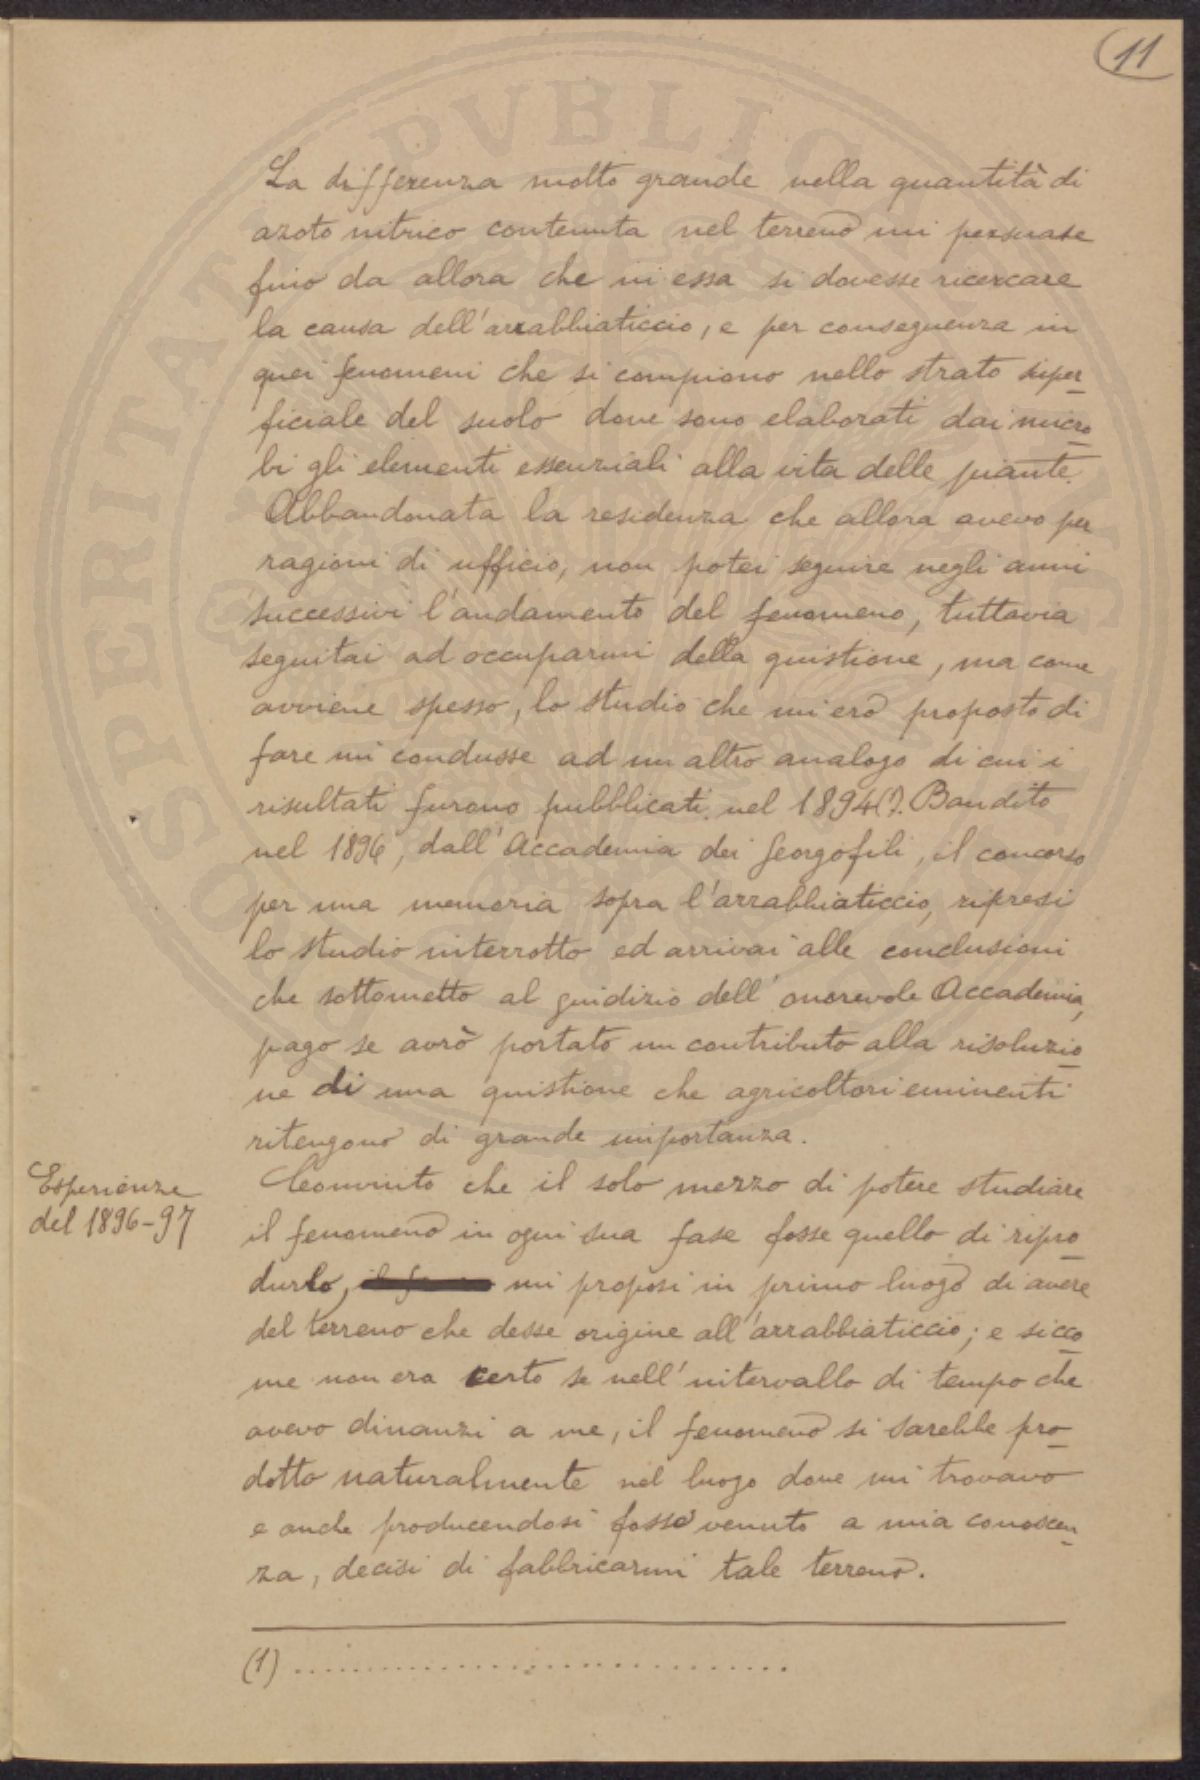 11
La differenza molto grande nella quantità di
azoto nitrico contenuta nel terreno mi persuase
fino da allora che in essa si dovesse ricercare
la causa dell'arrabbiaticcio, e per conseguenza in
quei fenomeni che si compiono nello strato super
ficiale del suolo dove sono elaborati dai micro
bi gli elementi essenziali alla vita delle piante.
Abbandonata la residenza che allora avevo per
ragioni di ufficio, non potei seguire negli anni
successivi l'andamento del fenomeno, tuttavia
seguitai ad occuparmi della quistione, ma come
avviene spesso, lo studio che mi ero proposto di
fare mi condusse ad un altro analogo di cui i
risultati furono pubblicati nel 1894(1). Bandito
nel 1896, dall'Accademia dei Georgofili, il concorso
per una memoria sopra l'arrabbiaticcio, ripresi
lo studio interrotto ed arrivai alle conclusioni
che sottometto al giudizio dell'onorevole Accademia,
pago se avrò portato un contributo alla risoluzio
ne di una quistione che agricoltori eminenti
ritengono di grande importanza.
Esperienze
del 1896-97
Convinto che il solo mezzo di potere studiare
il fenomeno in ogni sua fase fosse quello di ripro
durlo, mi proposi in primo luogo di avere
del terreno che desse origine all'arrabbiaticcio; e sicco
me non era certo se nell'intervallo di tempo che
avevo dinanzi a me, il fenomeno si sarebbe pro
dotto naturalmente nel luogo dove mi trovavo
e anche producendosi fosse venuto a mia conoscen
za, decisi di fabbricarmi tale terreno.
(1) ..............................
SPERITATI PVBLICA